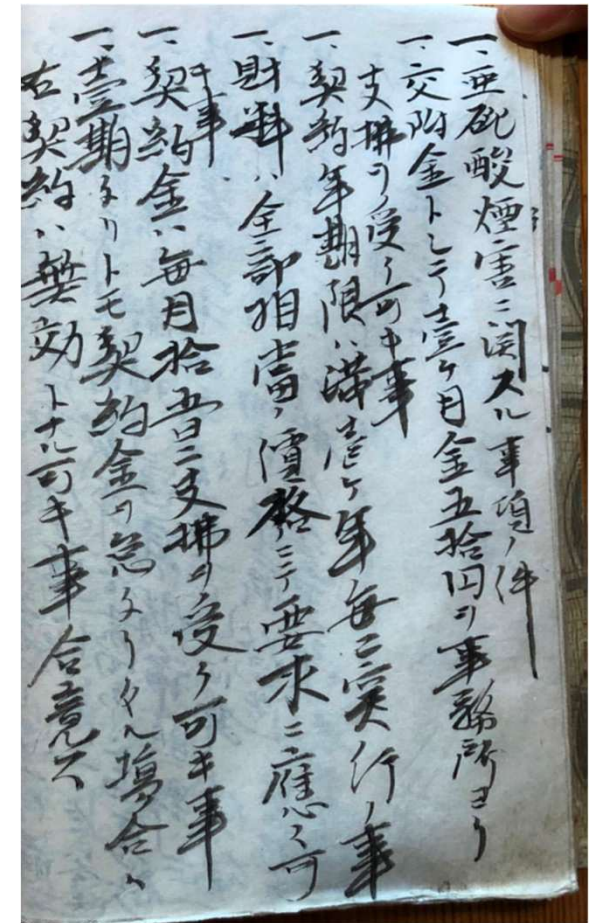 一、亜砒酸煙害ニ関スル事項ノ件
一、交附金トシテ壹ヶ月金五拾円ヲ事務所ヨリ
支拂ヲ受ク可キ事
一、契約年期限ハ満壱ヶ年毎ニ実行ノ事
一、財料ハ全部相当ノ價格ニテ要求ニ應ズ可
キ事
一、契約金ハ毎月拾五日ニ支拂ヲ受ク可キ事
一、壹期タリトモ契約金ヲ怠タリタル場合ハ
右契約ハ無効トナル可キ事合意ス